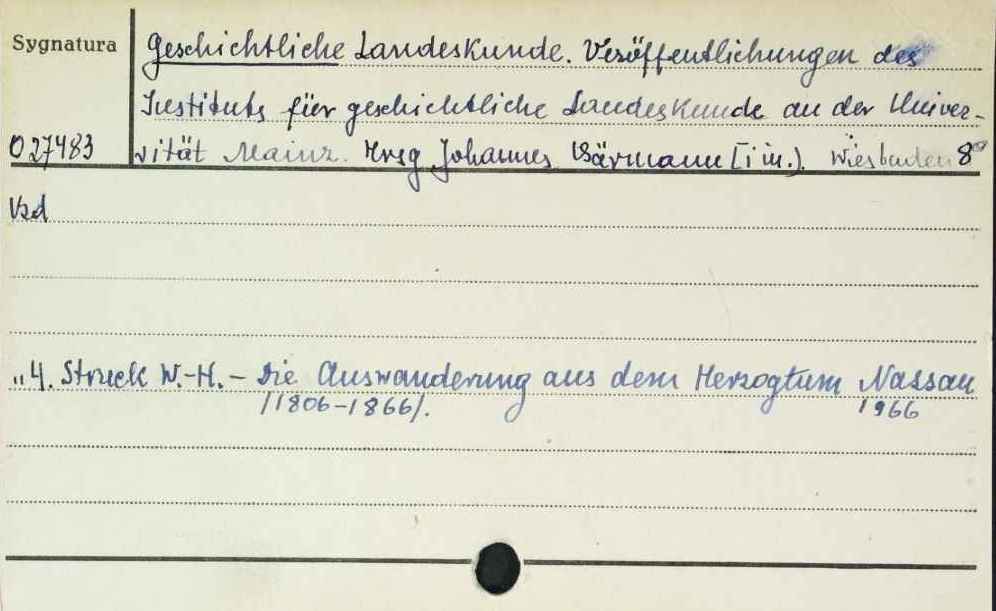 Sygnatura
Geschichtliche Landeskunde. Veröffentlichungen des
Instituts für geschichtliche Landeskunde an der Univer-
O 27483
sität Mainz. Hrsg Johannes Bärmann [i in.]. Wiesbaden 8°
Bd
"4. Struck W.-H. - Die Auswanderung aus dem Herzogtum Nassau
/1806-1866/. 1966